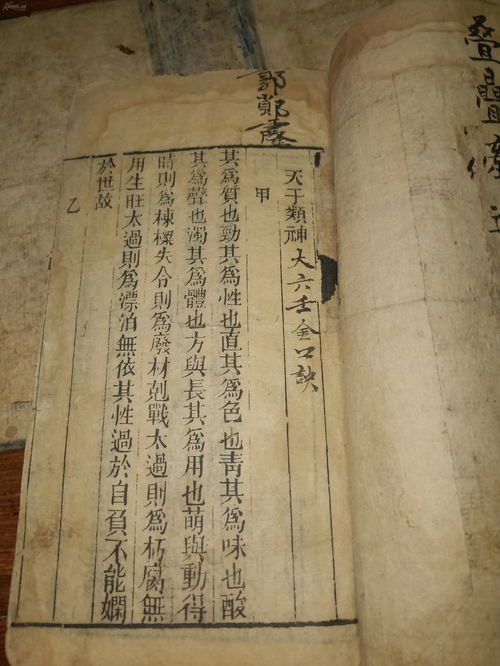 天干類神大六壬金口訣
甲
其爲質也勁其爲性也直其爲色也青其爲味也酸
其爲聲也濁其爲體也方與長其爲用也萌與動得
時則爲棟樑失令則爲廢材剋戰太過則爲朽腐無
用生旺太過則爲漂泊無依其性過於自負不能嫻
於世故
乙
郭鄭
疊疊